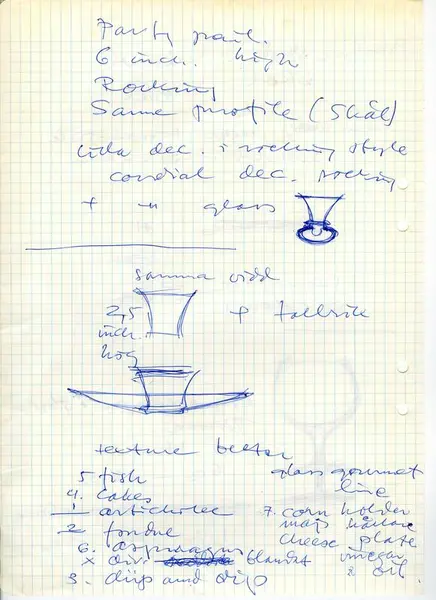 Party pail.
6 inch. high
Rocking
Same profile (Skål)
lilla dec. i rocking style
cordial dec. rocking
+ " glass
samma vidd
2,5 + tallrik
inch.
hög
texture better
5 fish glass gourmet
4. cakes line
1 artichokes 7. corn holder
2 fondue majs hållare
6. asparagus cheese plate
x div. blandat vinegar
3. dip and dip & oil